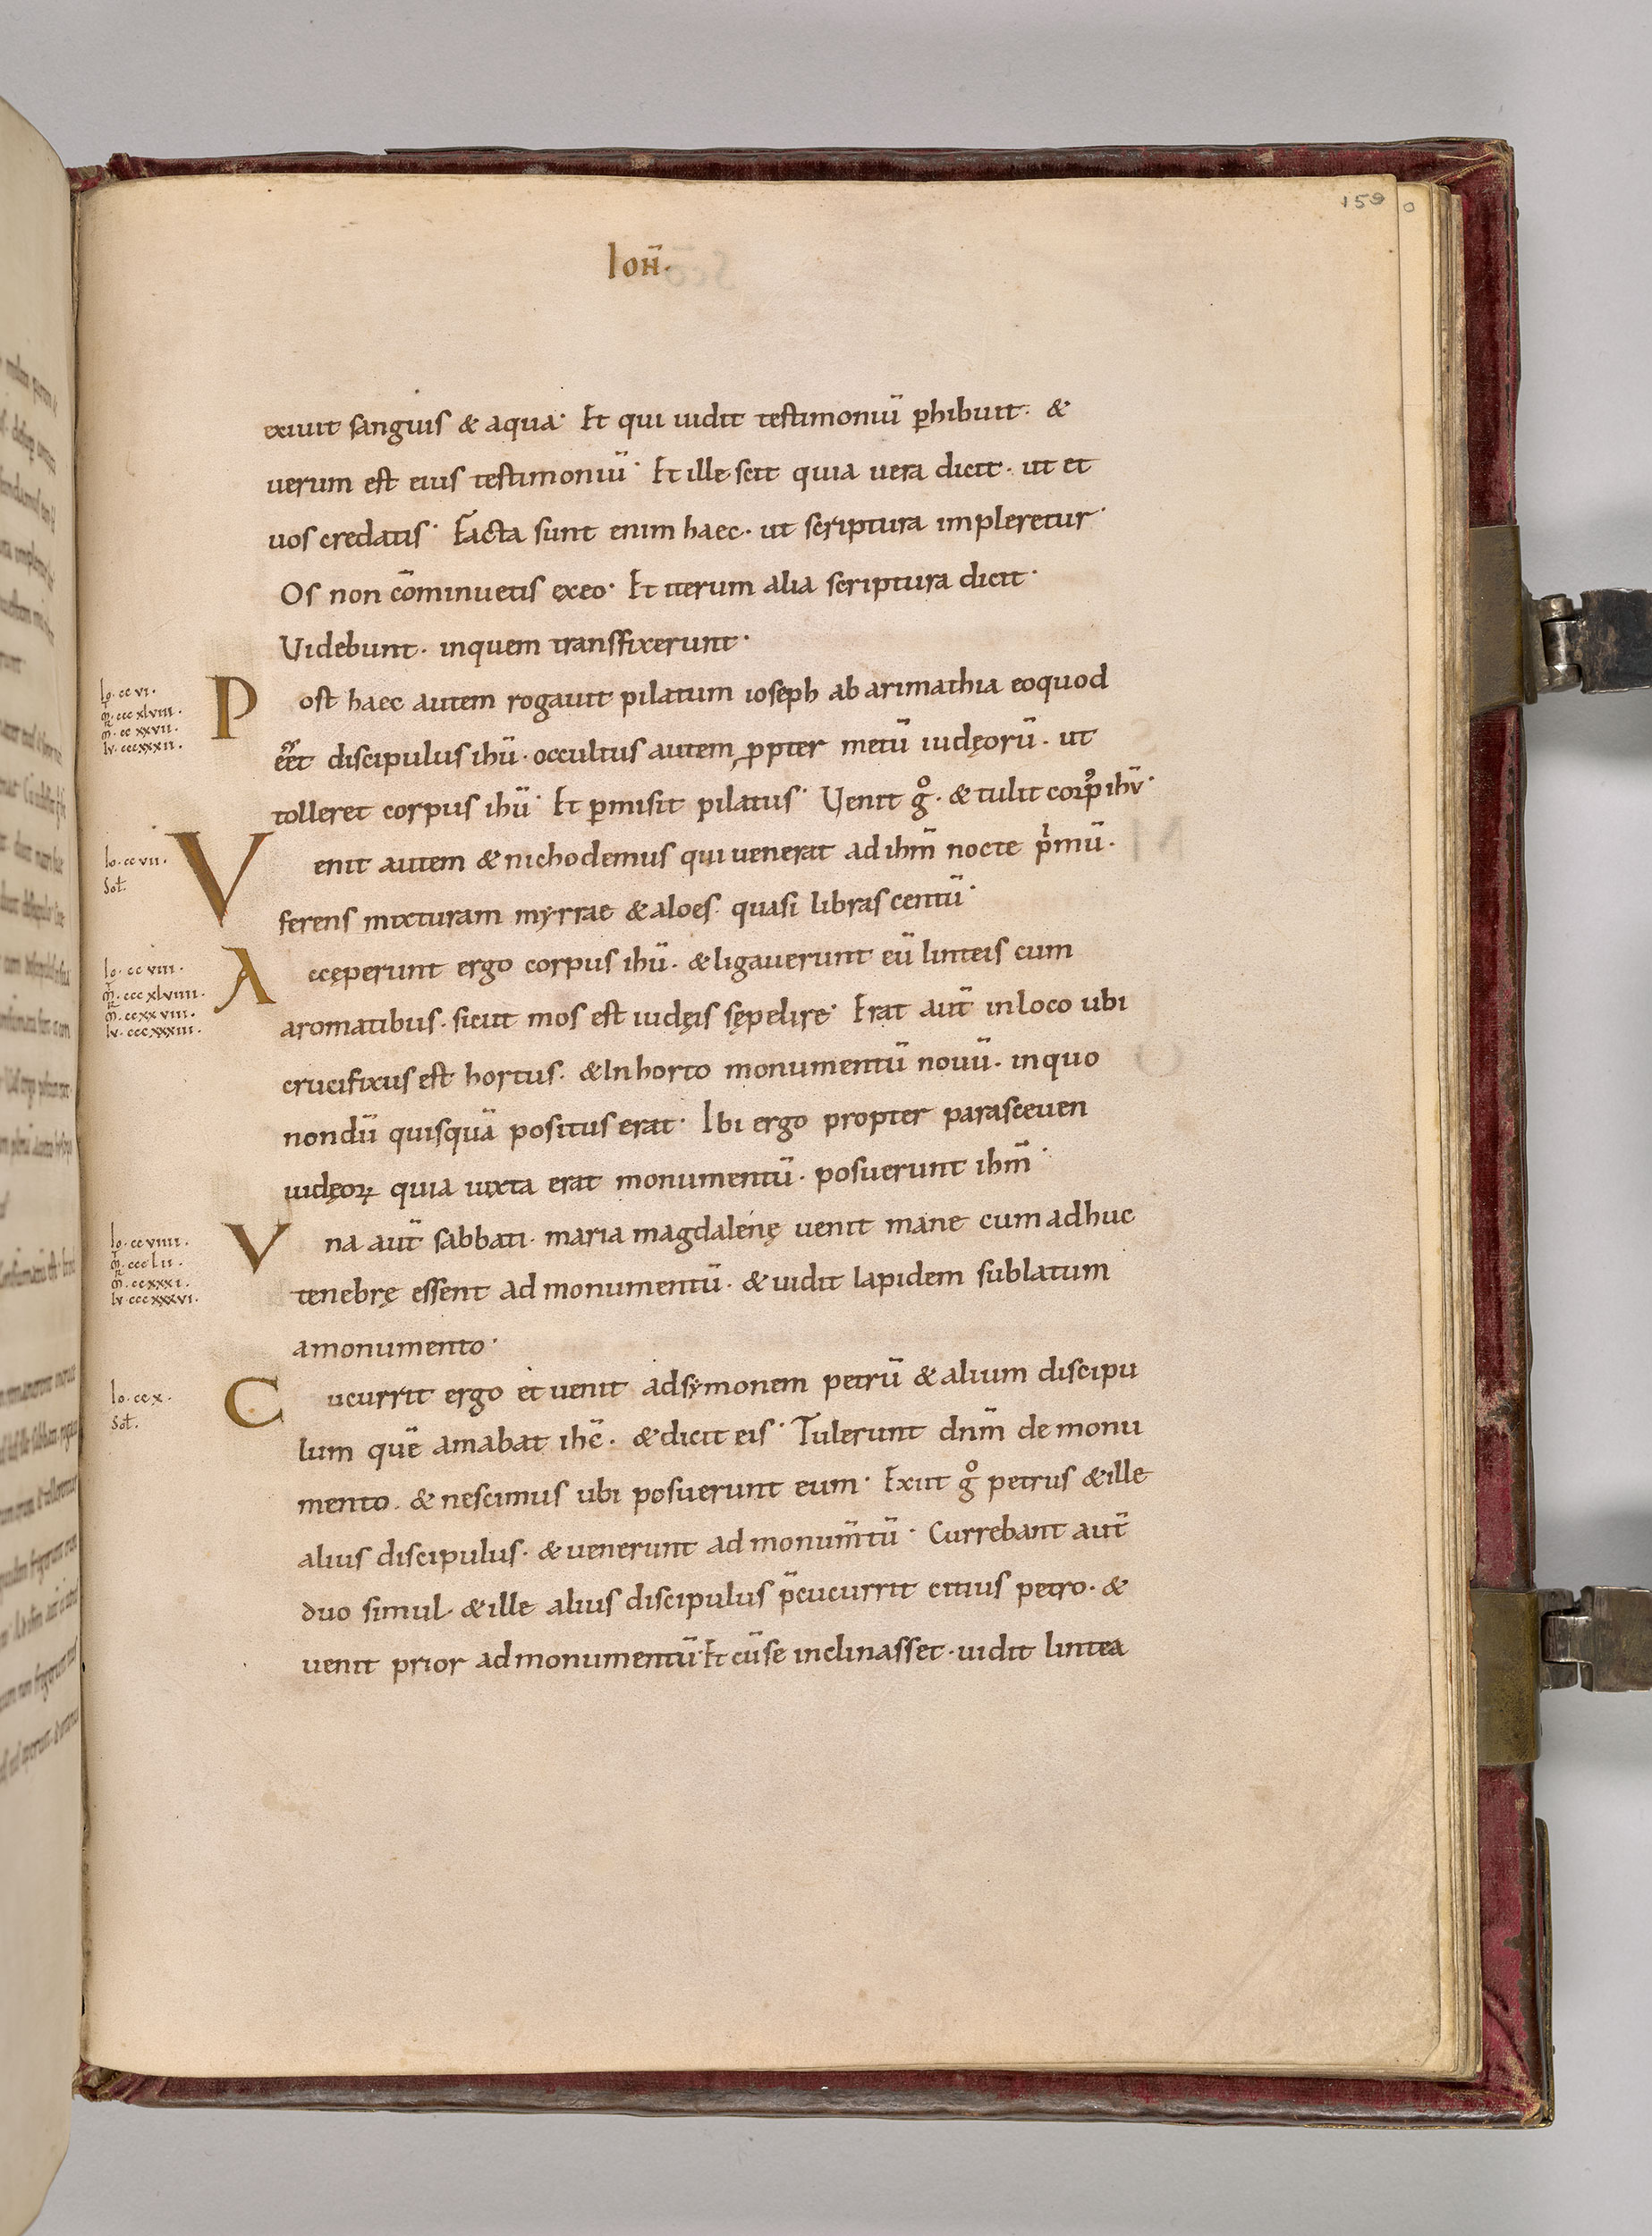 159
Ioħ̄.
exiuit sanguis & aqua· Et qui uidit testimoniū p̄hibuit· &
uerum est eius testimoniū· Et ille scit quia uera dicit· ut et
uos credatis· Facta sunt enim haec· ut scriptura impleretur·
Os non cōminuetis exeo· Et iterum alia scriptura dicit·
Videbunt· inquem transfixerunt·
Io· cc vi·
mr̄· ccc xlviii·
m̄· cc xxvii·
lv· cccxxxii·
Post haec autem rogauit pilatum ioseph ab arimathia eoquod
eēt discipulus ihū· occultus autem ꝓpter metū iudęorū· ut
tolleret corpus ihū· Et ꝑmisit pilatus· Venit gͦ· & tulit corpꝰ ihū·
Io· cc vii·
Sol̄.
Venit autem & nichodemus qui uenerat ad ihm̄ nocte pͥmū·
ferens mixturam myrrae & aloes· quasi libras centū·
Io· cc viii·
mr̄· ccc xlviiii·
m̄· ccxx viii·
lv· cccxxxiii·
Accęperunt ergo corpus ihū· & ligauerunt eū linteis cum
aromatibus· sicut mos est iudęis sępelire· Erat aut̄ inloco ubi
crucifixus est hortus· & Inhorto monumentū nouū· inquo
nondū quisquā positus erat· Ibi ergo propter parasceuen
iudęoꝝ quia iuxta erat monumentū· posuerunt ihm̄·
Io· cc viiii·
mr̄· ccc lii·
m̄· ccxxxi·
lv· cccxxxvi·
Vna aut̄ sabbati· maria magdalenę uenit mane cum adhuc
tenebrę essent ad monumentū· & uidit lapidem sublatum
amonumento·
Io· cc x·
Sol̄.
Cucurrit ergo et uenit adsymonem petrū & alium discipu
lum quē amabat ihc̄· & dicit eis· Tulerunt dnm̄ de monu
mento· & nescimus ubi posuerunt eum· Exiit gͦ petrus & ille
alius discipulus· & uenerunt ad monum̄tū· Currebant aut̄
duo simul· & ille alius discipulus p̄cucurrit citius petro· &
uenit prior admonumentū· Et cū se inclinasset· uidit lintea